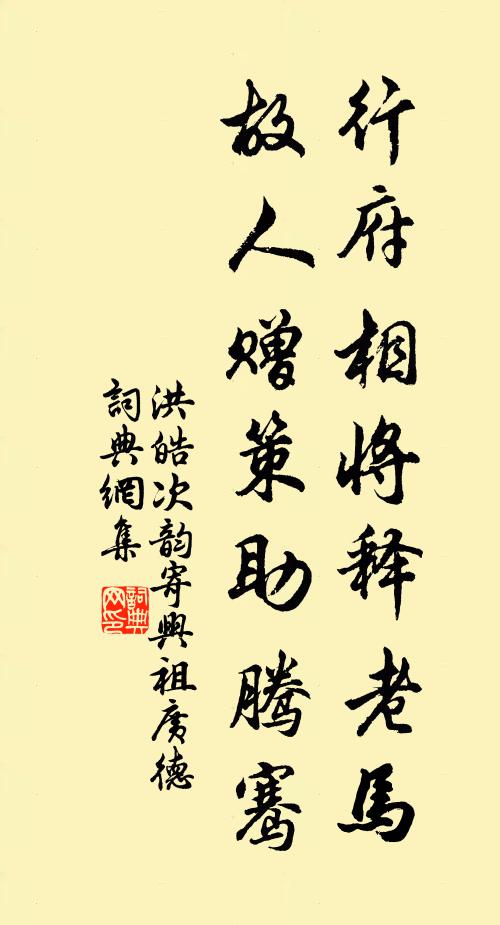 行府相将释老馬
故人赠策助腾骞
洪皓次韵寄興祖廣德
詞典網集
詞典网印